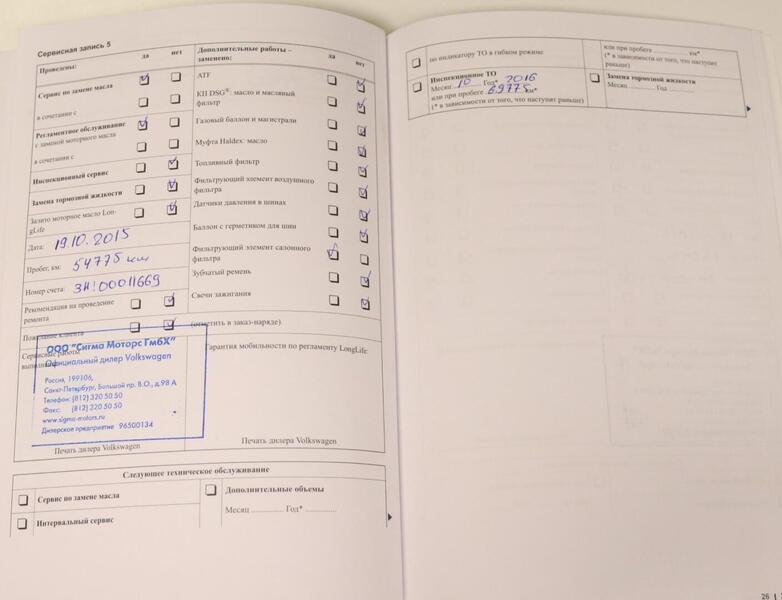 Сервисная запись 5
Проведены: да нет
Сервис по замене масла
в сочетании с
Регламентное обслуживание
с заменой моторного масла
в сочетании с
Инспекционный сервис
Замена тормозной жидкости
Залито моторное масло Lon-
gLife
Дата: 19.10.2015
Пробег, км: 54775 км
Номер счета: ЗН!00011669
Рекомендация на проведение
ремонта
Пожелание клиента
(отметить в заказ-наряде).
Сервисные работы
выполнены
ООО "Сигма Моторс ГмбХ"
Официальный дилер Volkswagen
Россия, 199106,
Санкт-Петербург, Большой пр. В.О., д.98 А
Телефон: (812) 320 50 50
Факс: (812) 320 50 50
www.sigma-motors.ru
Дилерское предприятие 96500134
Печать дилера Volkswagen
Дополнительные работы –
заменено: да нет
ATF
КП DSG®: масло и масляный
фильтр
Газовый баллон и магистрали
Муфта Haldex: масло
Топливный фильтр
Фильтрующий элемент воздушного
фильтра
Датчики давления в шинах
Баллон с герметиком для шин
Фильтрующий элемент салонного
фильтра
Зубчатый ремень
Свечи зажигания
Гарантия мобильности по регламенту LongLife:
Печать дилера Volkswagen
Следующее техническое обслуживание
Сервис по замене масла
Интервальный сервис
Дополнительные объемы
Месяц .......... Год* ..........
по индикатору ТО в гибком режиме
или при пробеге .......... км*
(* в зависимости от того, что наступит
раньше)
Инспекционное ТО
Месяц 10 Год* 2016
или при пробеге 69775 км*
(* в зависимости от того, что наступит раньше)
Замена тормозной жидкости
Месяц .......... Год ..........
26